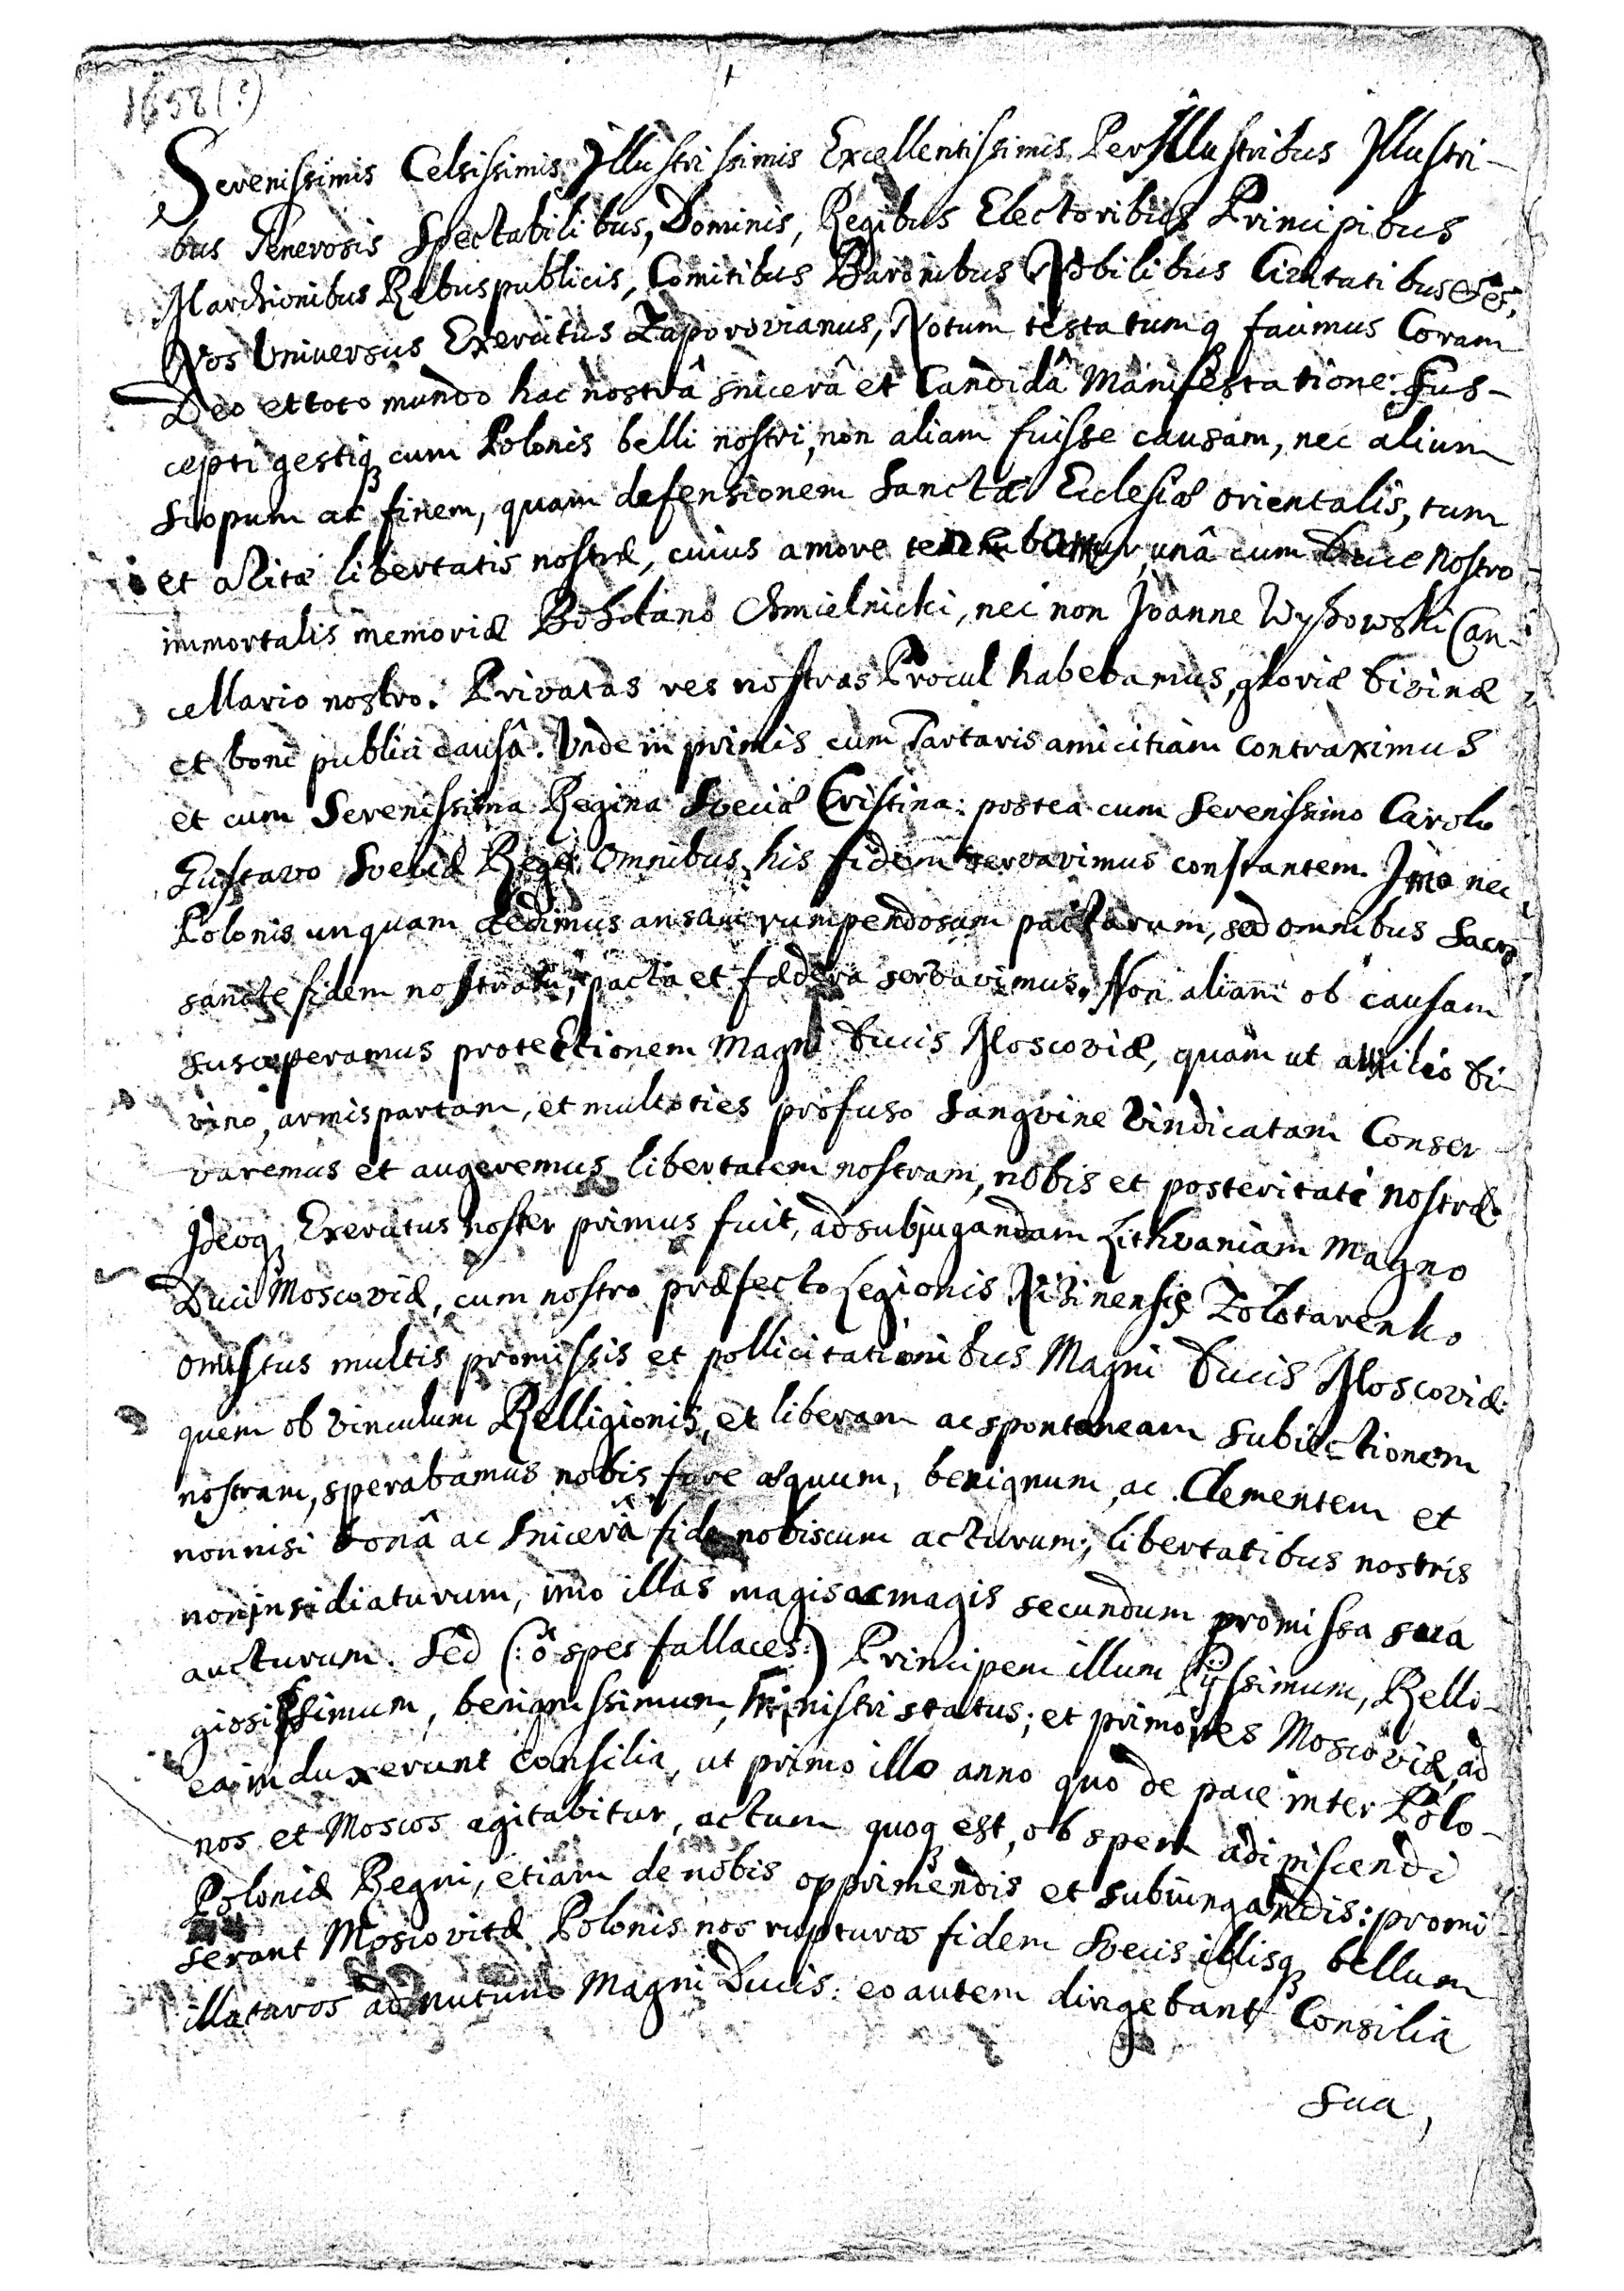 1658(?)
Serenissimis Celsissimis Illustrissimis Excellentissimis PerIllustribus Illustri-
bus Generosis Spectabilibus, Dominis, Regibus Electoribus Principibus
Marchionibus Rebuspublicis, Comitibus Baronibus Nobilibus Civitatibus &c,
Nos Universus Exercitus Zaporovianus, Notum testatumq facimus Coram
Deo et toto mundo hac nostrâ sincerâ et Candidâ Manifestatione: Sus-
cepti gestiq cum Polonis belli nostri, non aliam fuisse causam, nec alium
scopum ac finem, quam defensionem Sanctæ Ecclesiæ orientalis, tum
et avitæ libertatis nostræ, cuius amore tenebamur, unâ cum Duce Nostro
immortalis memoriæ Bohdano Chmielnicki, nec non Joanne Wyhowski Can-
cellario nostro. Privatas res nostras Procul habebamus, gloriæ divinæ
et boni publici causâ. Unde in primis cum Tartaris amicitiam contraximus
et cum Serenissima Regina Sveciæ Cristina: postea cum Serenissimo Carolo
Gustavo Sveciæ Rege. Omnibus his fidem servavimus constantem. Imo nec
Polonis unquam dedimus ansam rumpendosam pactarum, sed omnibus Sacro
sancte fidem nostram, pacta et fædera servavimus. Non aliam ob causam
susceperamus protectionem Magni Ducis Moscoviæ, quam ut auxilio di-
vino, armis partam, et multoties profuso sangvine vindicatam Conser-
varemus et augeremus libertatem nostram, nobis et posteritati nostræ.
Ideoq Exercitus noster primus fuit, ad subjugandam Lithvaniam Magno
Duci Moscoviæ, cum nostro præfecto Legionis Nizinensis Zolotarenko
onustus multis promissis et pollicitationibus Magni Ducis Moscoviæ.
quem ob vinculum Relligionis, et liberam ac spontaneam subiectionem
nostram, sperabamus nobis fore æquum, benignum, ac Clementem et
nonnisi bonâ ac sincerâ fide nobiscum acturum; libertatibus nostris
non insidiaturum, imo illas magis ac magis secundum promissa sua
aucturum. Sed (: ô spes fallaces:) Principem illum Pijssimum, Relli-
giosissimum, benignissimum, Ministri status; et primores Moscoviæ, ad
ea induxerunt consilia, ut primo illo anno quo de pace inter Polo-
nos et Moscos agitabitur, actum quoq est, ob spem adipiscendi
Poloniæ Regni, etiam de nobis opprimendis et subiungandis: promi
serant Moscovitæ Polonis nos rupturos fidem Svecis illisq bellum
illaturos ad nutum Magni Ducis: eo autem dirigebant Consilia
sua,